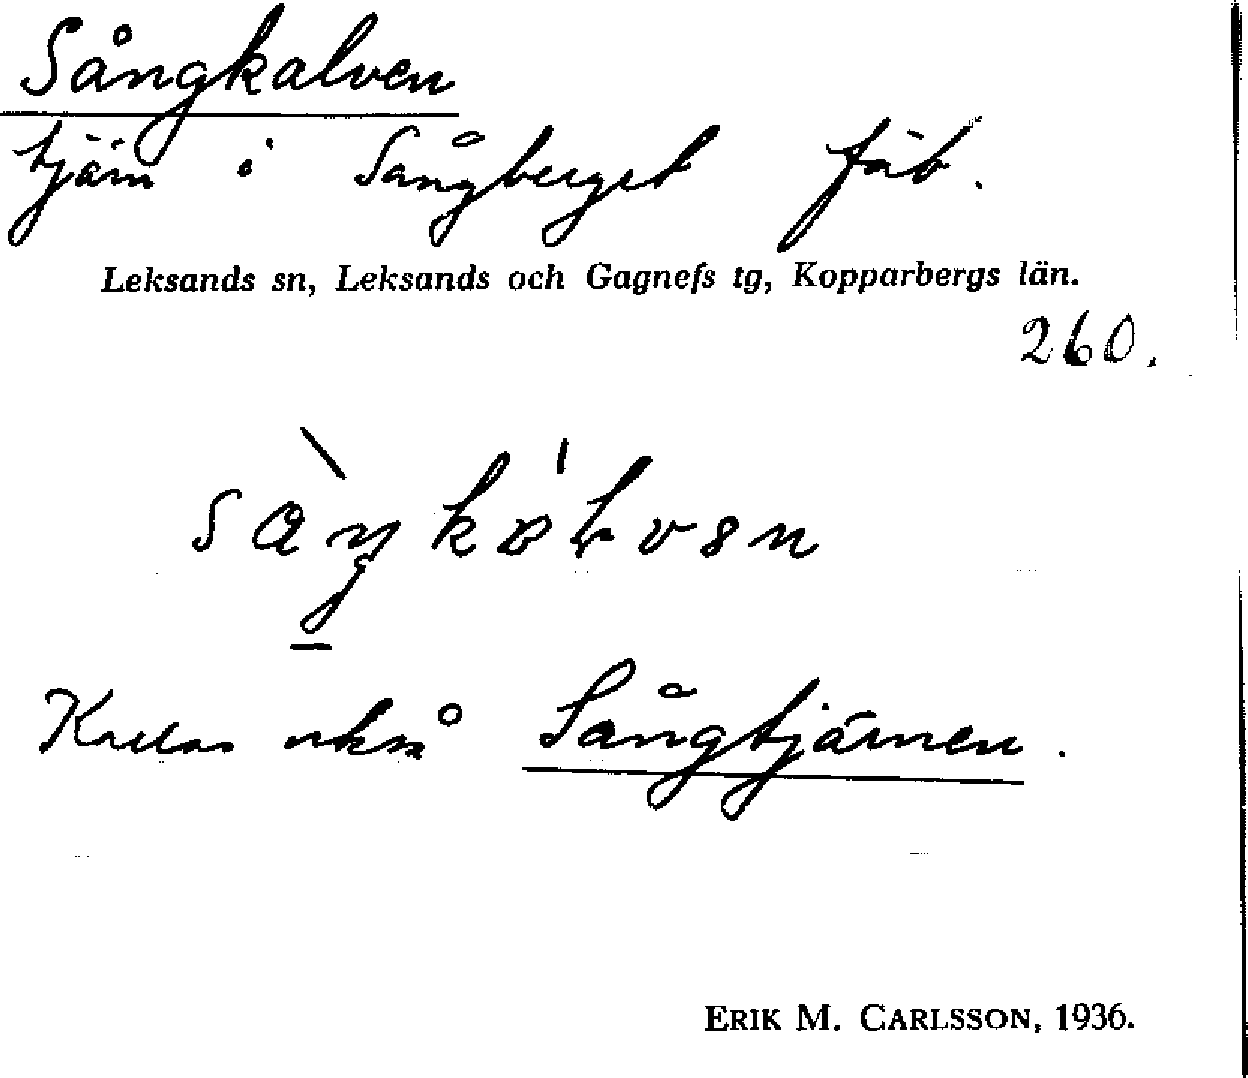 Sångkalven
tjärn i Sångberget fäb.
Leksands sn, Leksands och Gagnefs tg, Kopparbergs län.
260.
Kallas också Sångtjärnen.
ERIK M. CARLSSON, 1936.